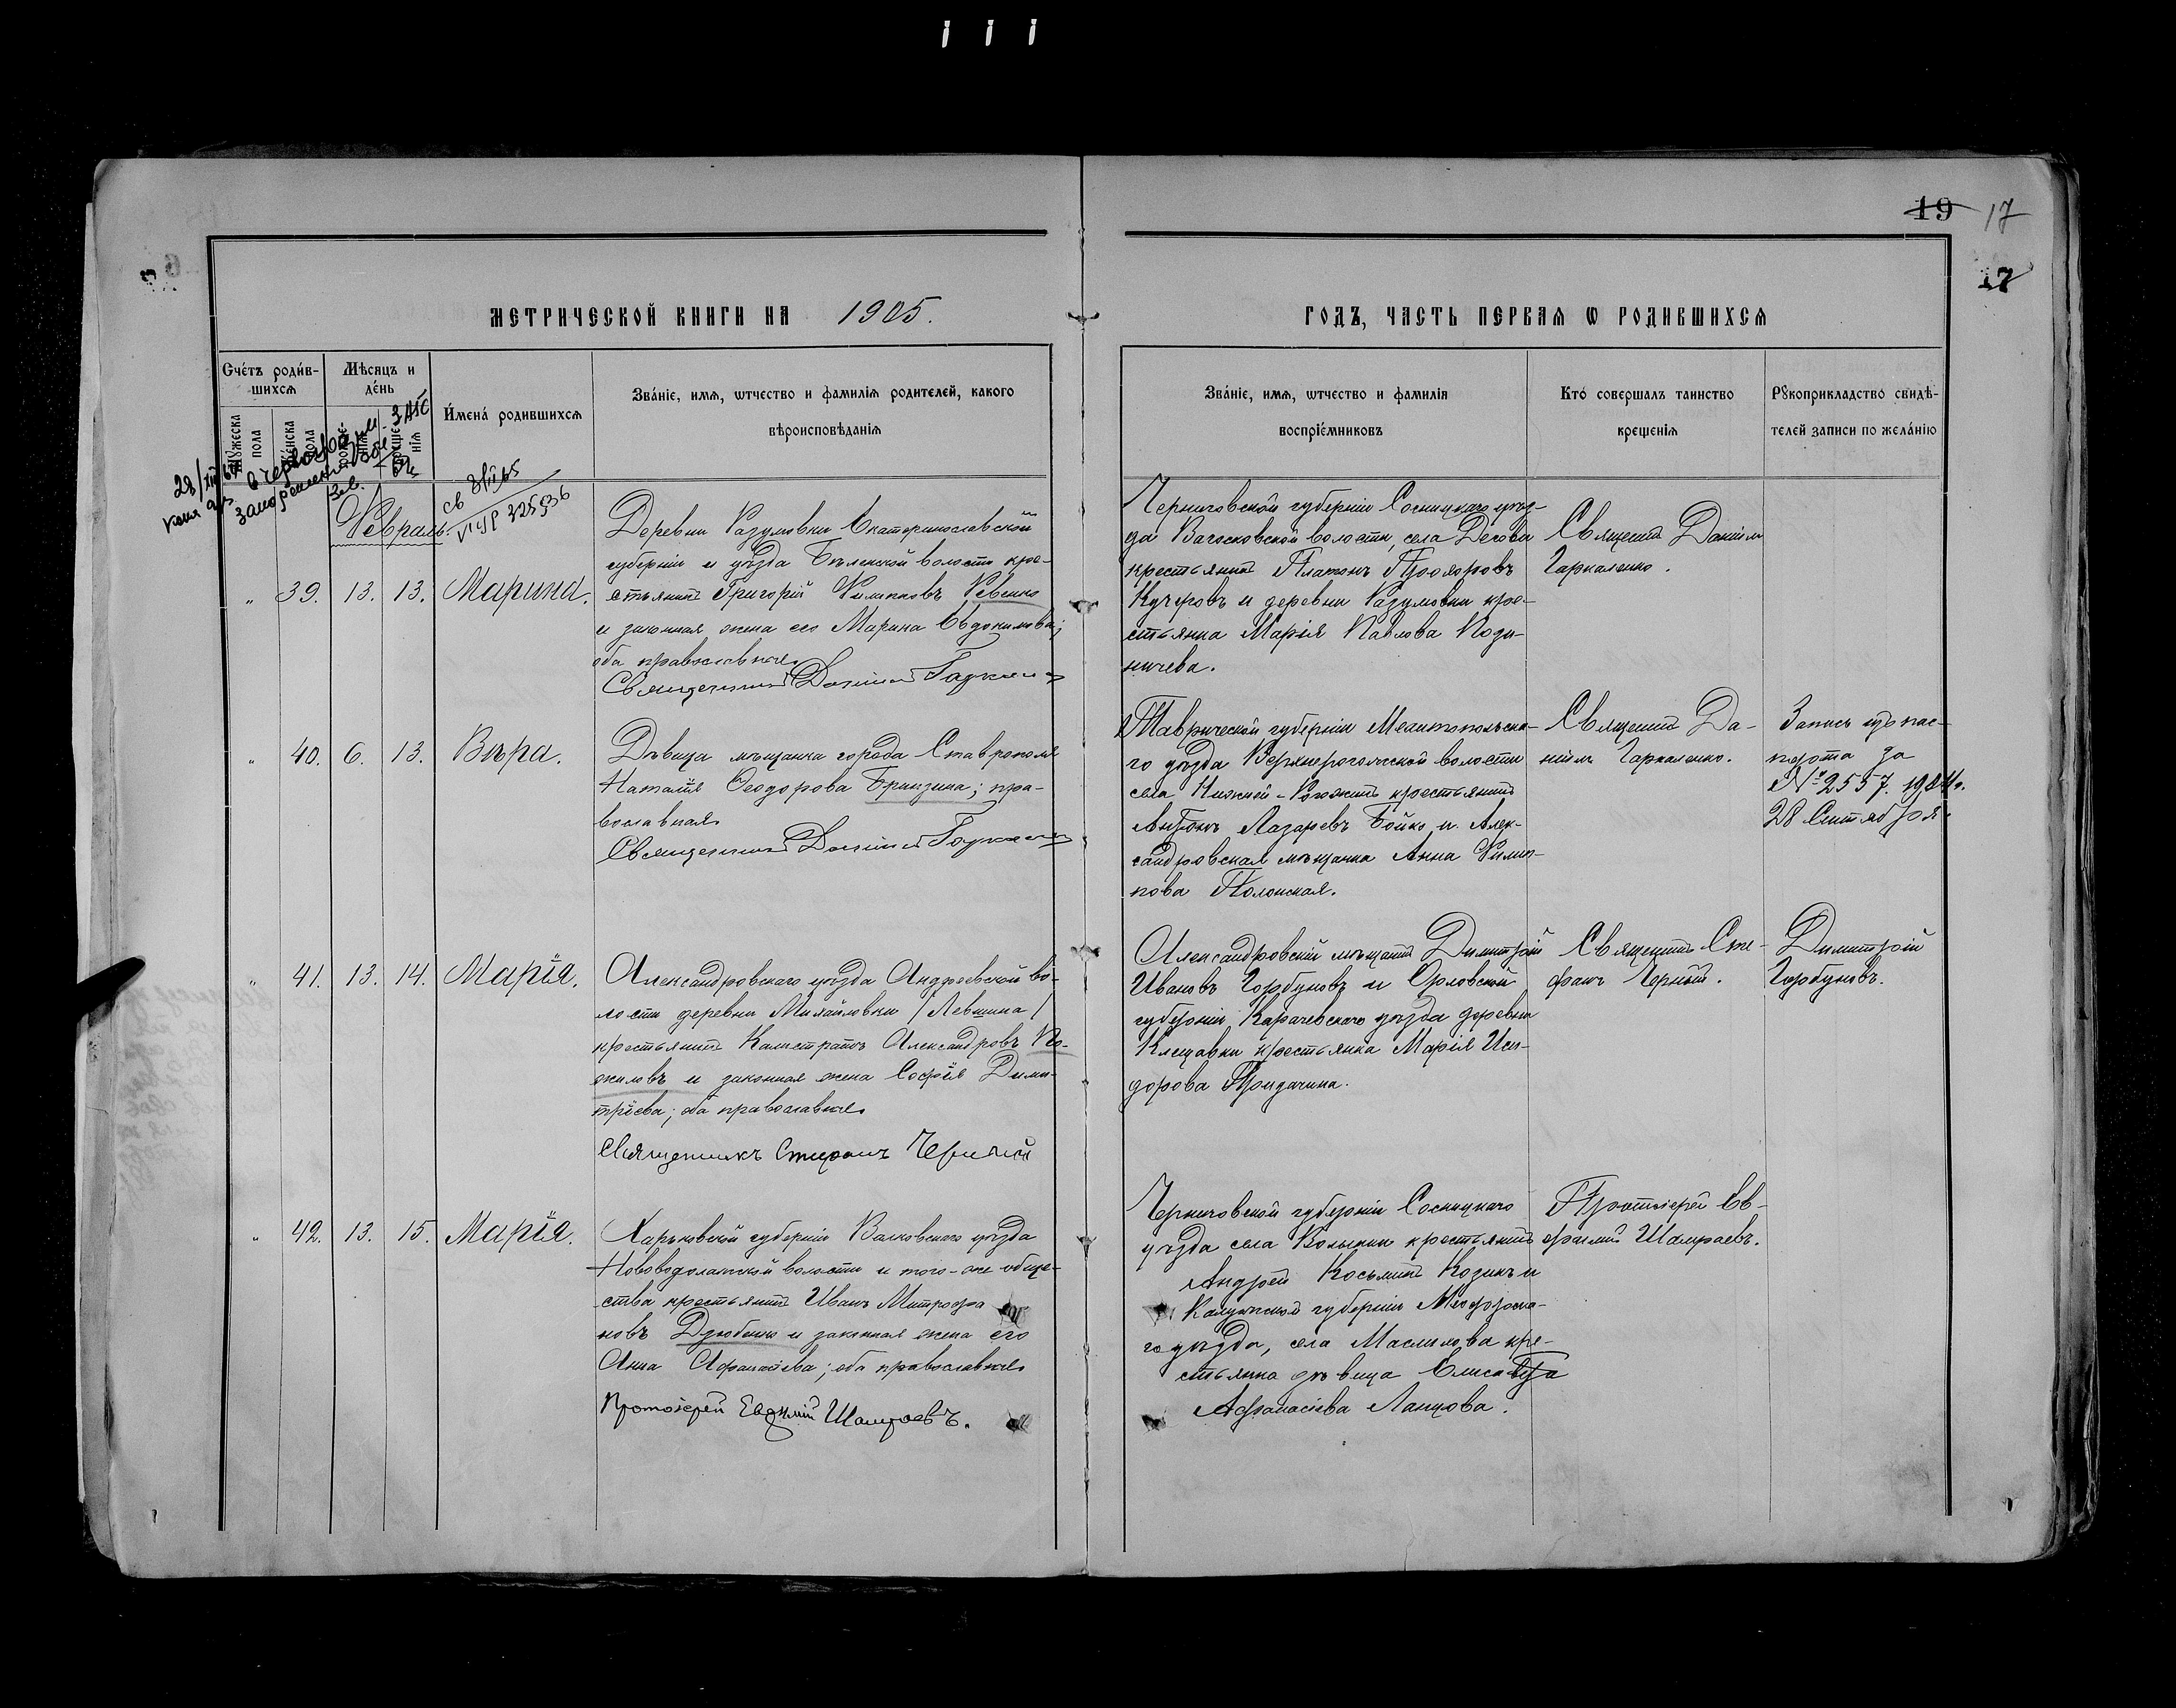 19 17
17
МЕТРИЧЕСКОЙ КНИГИ НА 1905.
ГОДЪ, ЧАСТЬ ПЕРВАЯ Ѡ РОДИВШИХСЯ
Счетъ родив-
шихся
Мужеска пола
Женска пола
Мѣсяцъ и
день
Имена родившихся
Званіе, имя, ѡтчество и фамилія родителей, какого
вѣроисповѣданія
Званіе, имя, ѡтчество и фамилія
воспріемниковъ
Кто совершалъ таинство
крещенія
Рукоприкладство свидѣ-
телей записи по желанію
Февраль.
„ 39. 13. 13. Марина.
Деревни Разумовки Екатеринославской
губерніи и уѣзда Бѣленской волости кре-
стьянинъ Григорій Филипповъ Ревенко
и законная жена его Марина Евдокимова;
оба православные
Священникъ Даніилъ
Черниговской губерніи Сосницкаго уѣз-
да волости, села
крестьянинъ Платонъ Прохоровъ
Кучеровъ и деревни Разумовки кре-
стьянка Марія Павлова
Священникъ Даніилъ
Гаркаленко.
„ 40. 6. 13. Вѣра.
Дѣвица мѣщанка города Ставрополя
Наталія Ѳеодорова Бринзина; пра-
вославная
Священникъ Даніилъ
Таврической губерніи Мелитопольска-
го уѣзда волости
села крестьянинъ
Антонъ Лазаревъ Бойко и Алек-
сандровская мѣщанка Анна Филип-
пова Полонская.
Священникъ Да-
ніилъ Гаркаленко.
Запись пас-
порта за
№ 2557. 1904 г.
28 Сентября.
„ 41. 13. 14. Марія.
Александровскаго уѣзда Андреевской во-
лости деревни Михайловки /Левшина/
крестьянинъ Калистратъ Александровъ По-
жиловъ и законная жена Софія Дими-
тріева; оба православные
Священникъ Стефанъ Черный
Александровскій мѣщанинъ Димитрій
Ивановъ Горбуновъ и Орловской
губерніи Карачевскаго уѣзда деревни
крестьянка Марія Иси-
дорова
Священникъ Сте-
фанъ Черный.
Димитрій
Горбуновъ.
„ 42. 13. 15. Марія.
Харьковской губерніи Валковскаго уѣзда
Нововодолажской волости и того-же обще-
ства крестьянинъ Иванъ Митрофа
новъ Дзюбенко и законная жена его
Анна Афанасіева; оба православные
Протоіерей Евфимій Шамраевъ.
Черниговской губерніи Сосницкаго
уѣзда села Волынки крестьянинъ
Андрей Косьминъ Козикъ и
Калужской губерніи
го уѣзда, села Маслилова кре-
стьянка дѣвица Елисавета
Афанасіева Ланцова.
Протоіерей Ев-
фимій Шамраевъ.